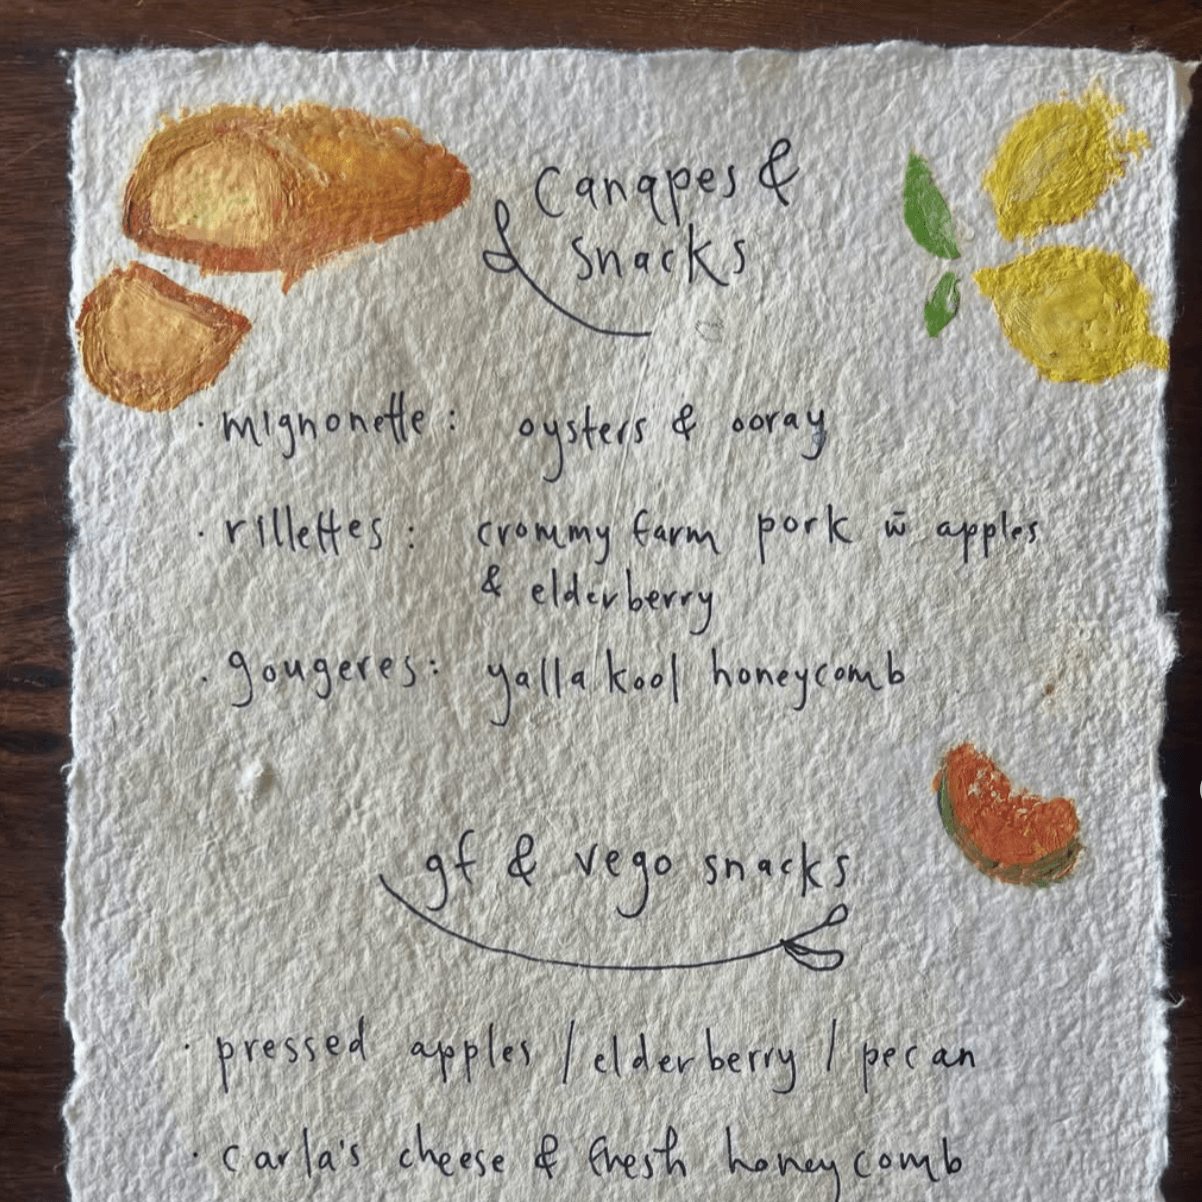 canapes &
snacks
· mignonette: oysters & ooray
· rillettes: crommy farm pork w̄ apples
& elderberry
· gougeres: yallakool honeycomb
gf & vego snacks
· pressed apples / elderberry / pecan
· carla's cheese & fresh honeycomb